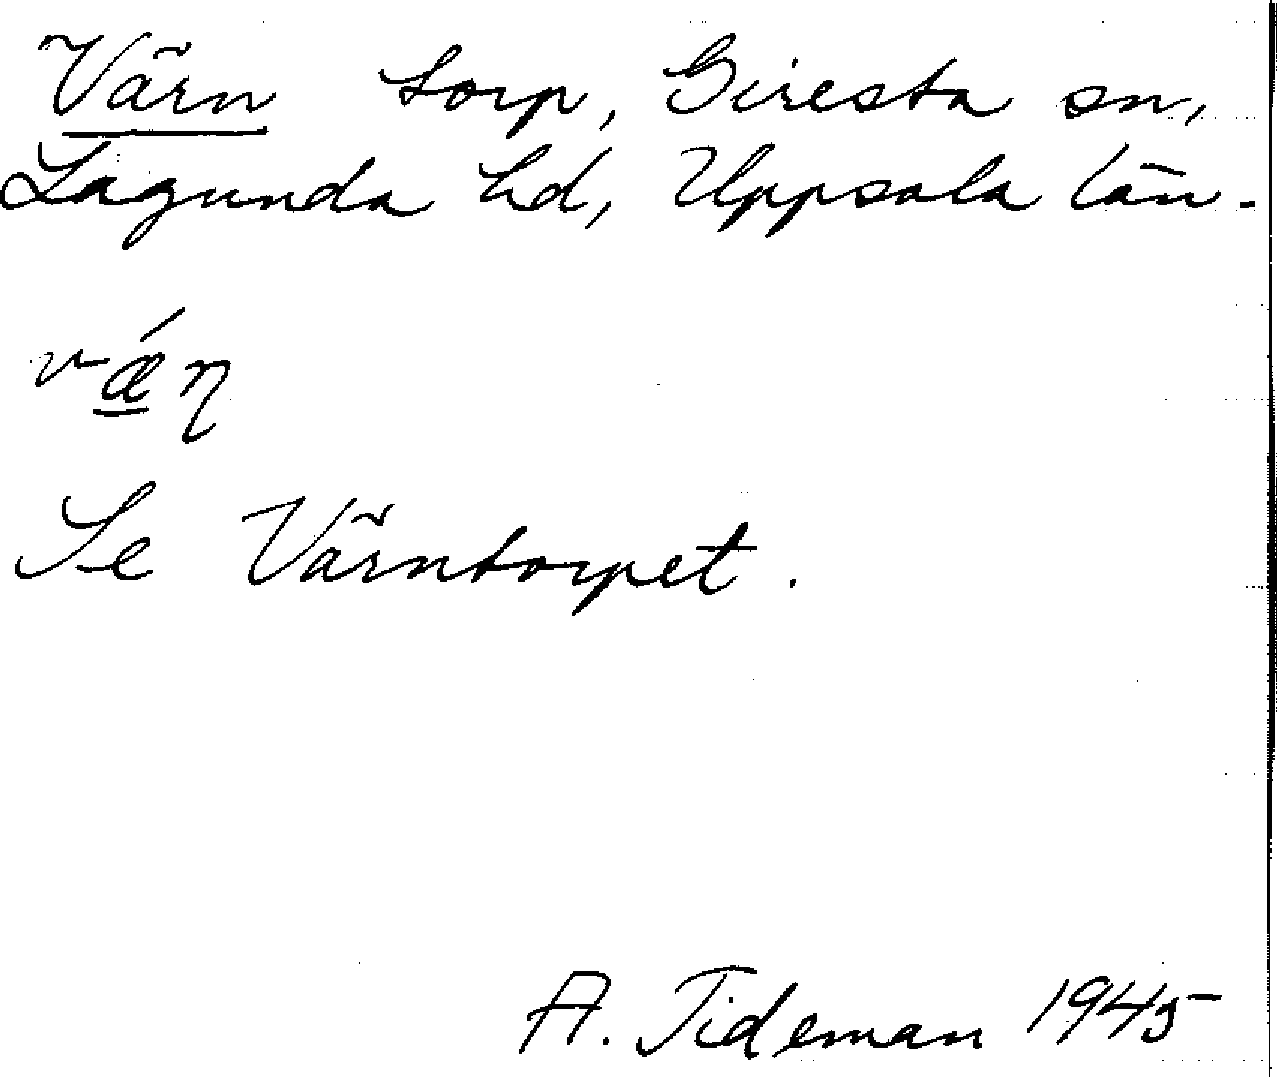 Värn torp, Giresta sn,
Lagunda hd, Uppsala län.
vǽ̲ɳ
Se Värntorpet.
A. Tideman 1945